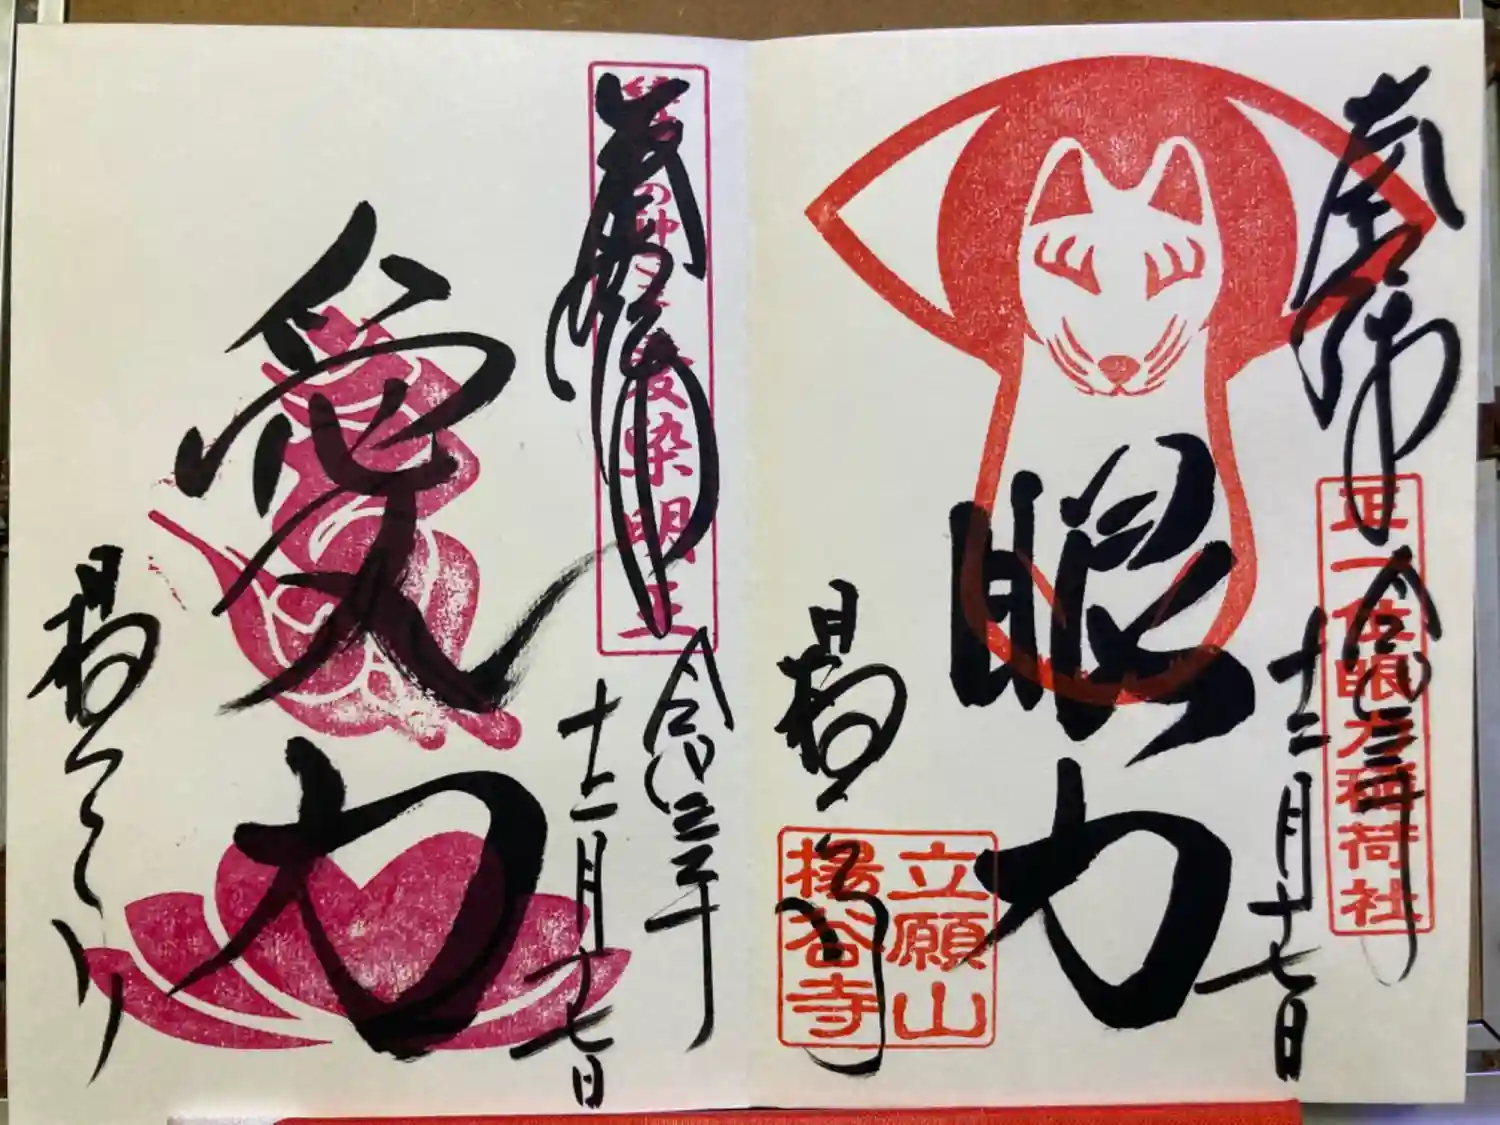 奉拝
正一位眼力稲荷社
令和三年
十二月十七日
眼力
立願山
楊谷寺
奉拝
愛染明王
令和三年
十二月十七日
愛力